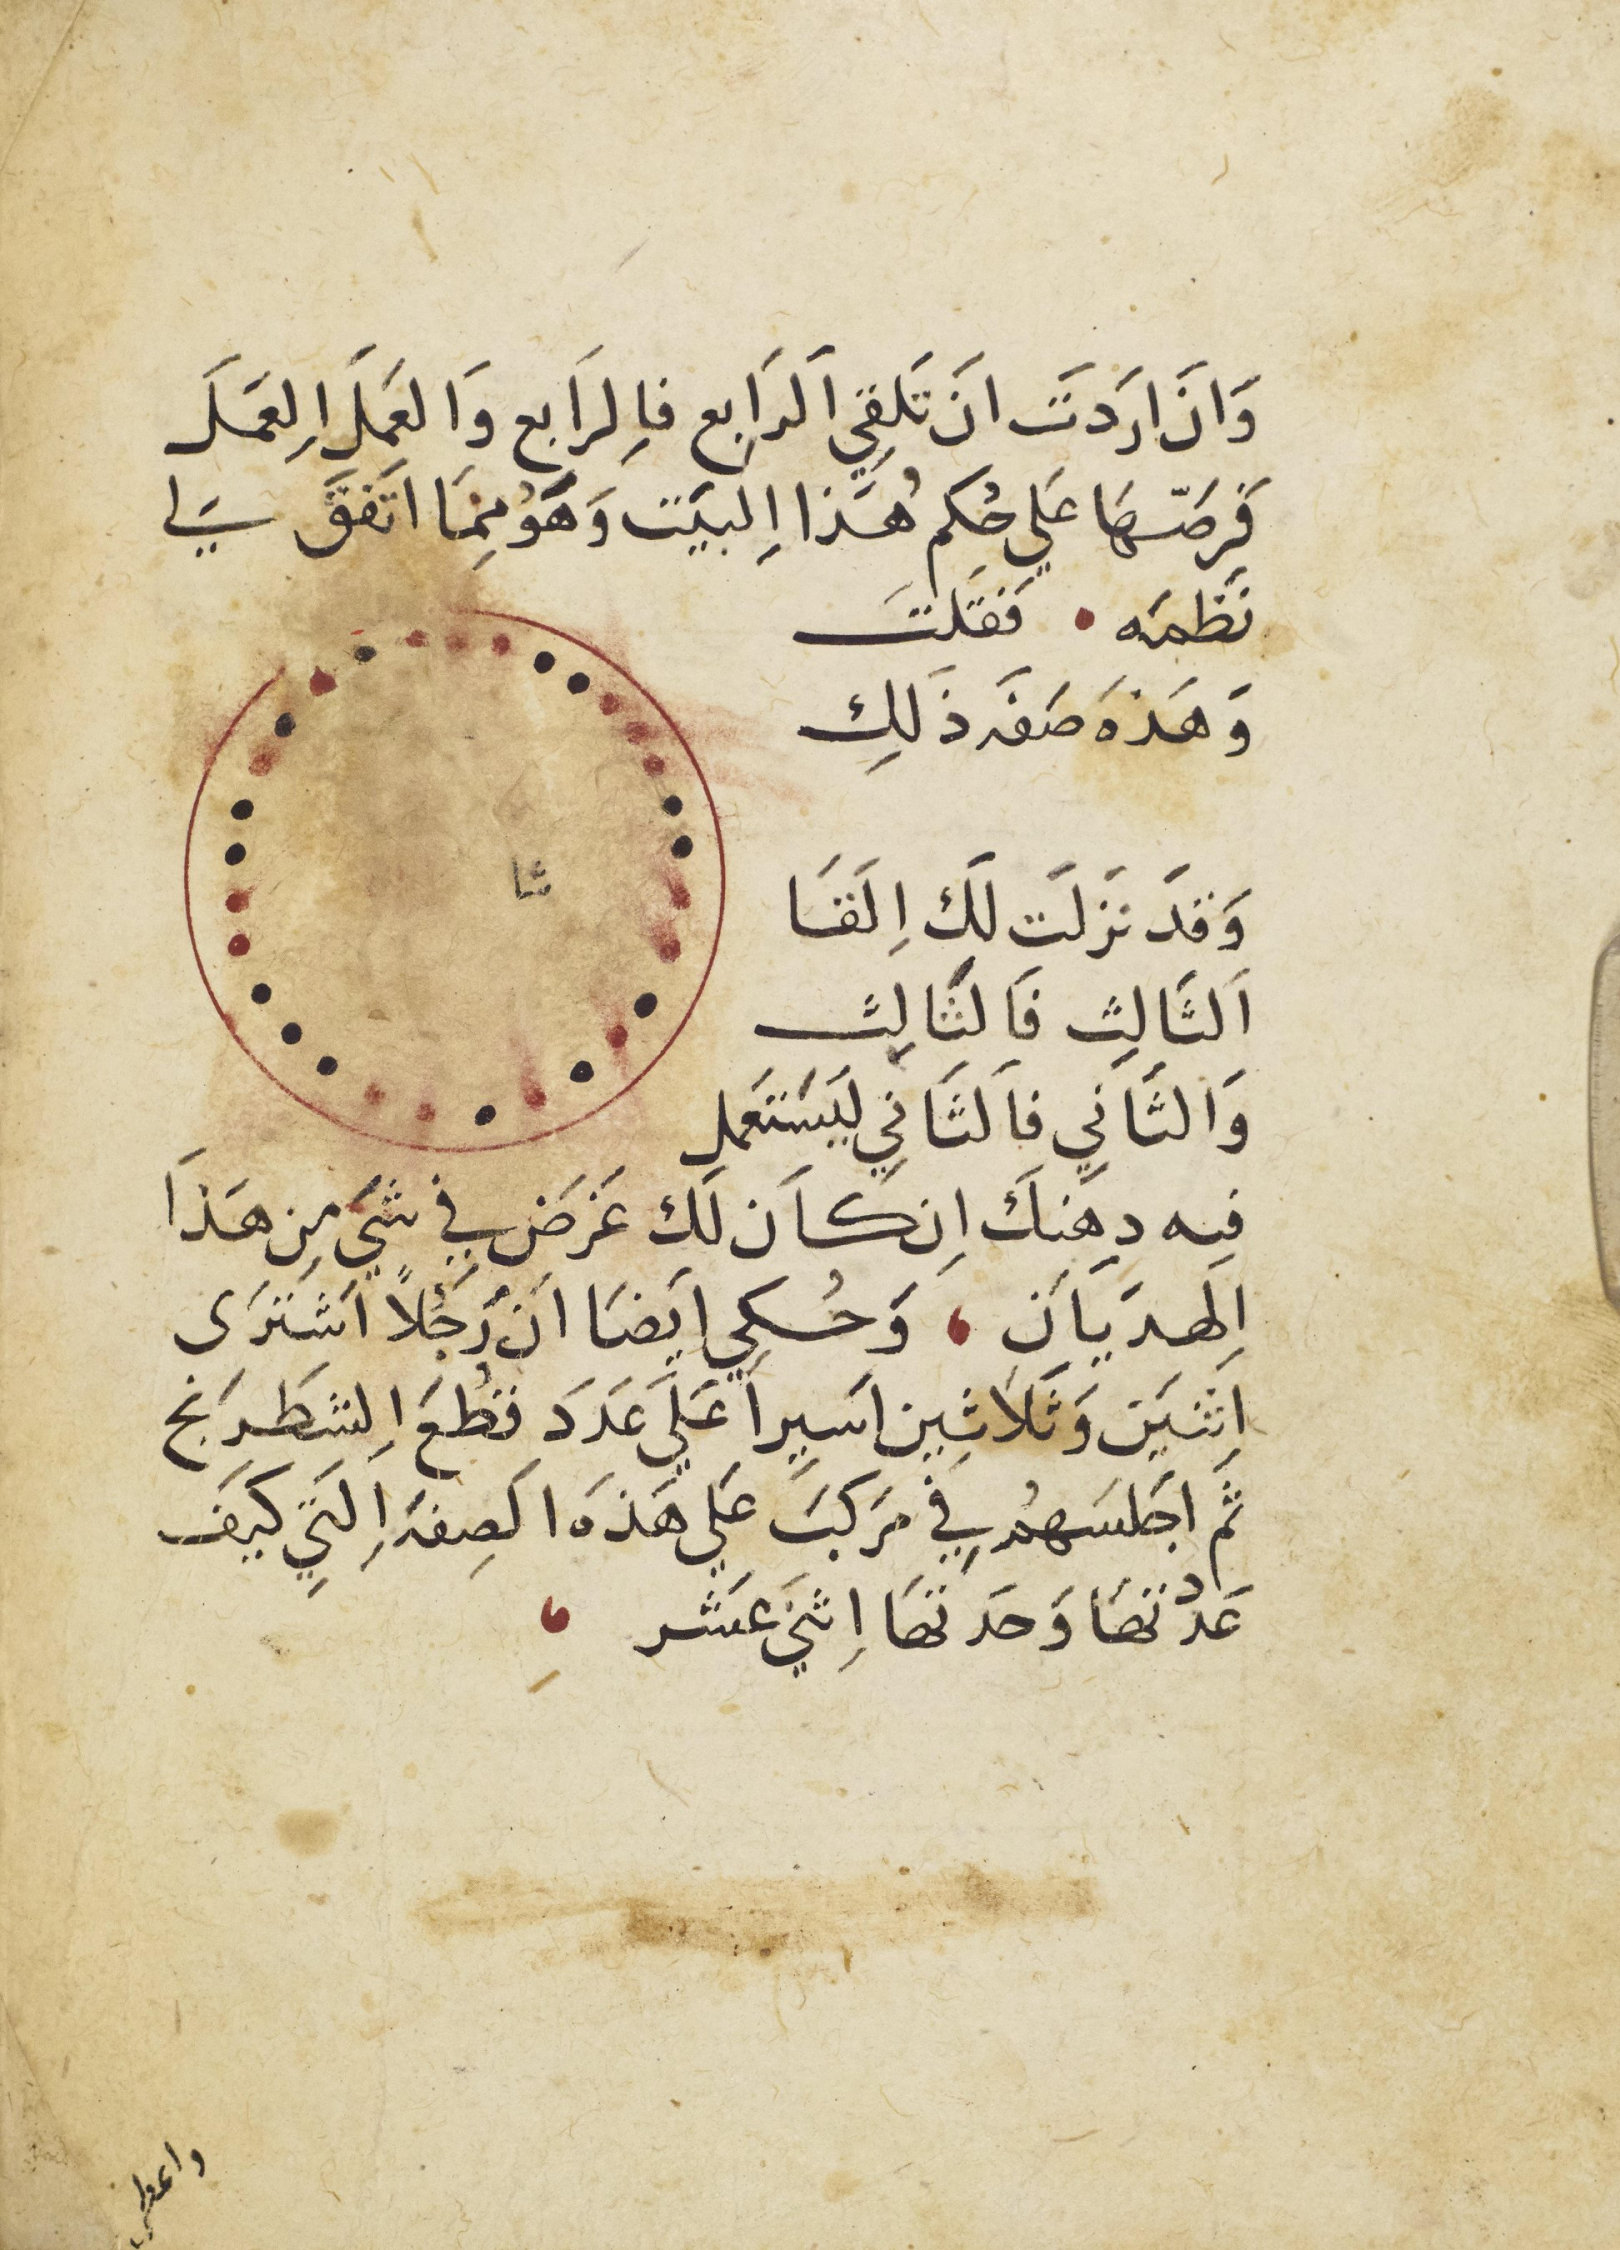 وَانَ ارَدَتَ انَ تَلَقِي اَلرَابِع فاِلرَابع وَالعَمَلَ اِلعَمَلَ
فَرِصّهَا عَلي حُكِم هُذا اِلبيَت وَهَوُ مِمَا اتَفقَ لي
نَظمَه • فَقلتَ
وَهَذهَ صَفَه ذَلِك
ثما
وَقدَ نَزلَت لَك اِلَقَا
اَلثَالِث فاَلثَالِث
وَالثَانيِ فاَلثَانيِ ليَسَتعَمل
فيه دِهَنِك اِن كاَن لَك غَرَض في شَيَ مِن هَذَا
اِلهدَيَان ، وَحُكِي ايَضا انَ رَجُلاً اشَترَى
اِثنيَن وَثَلَاثِين اسَيِراَ عَلَي عَدَدَ قطُعَ اِلشطَرِنج
ثَم اجَلسَهمُ فيِ مَركبَ عَلي هَذهَ الَصِفهَ اِلَتيِ كَيَف
عَدُتهَا وَحَدَتهَا اِثنيَ عشَر ،
واعط